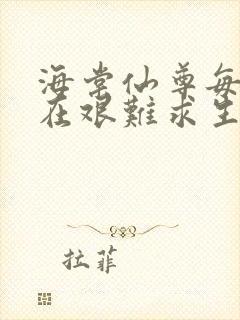 海棠仙尊每
在艰難求生
拉菲